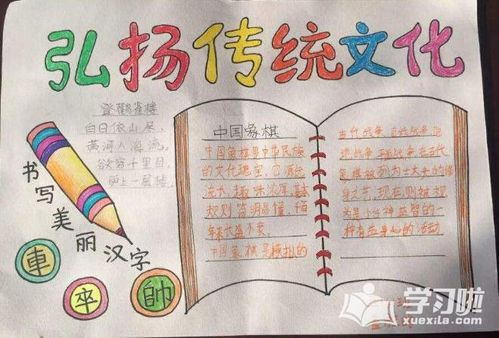 弘扬传统文化
登鹳雀楼
白日依山尽,
黄河入海流,
欲穷千里目,
更上一层楼.
书写美丽汉字
車
卒
帥
中国象棋
中国象棋是中华民族
的文化瑰宝,它源远
流长,趣味浓厚,基本
规则简明易懂,千百
年来长盛不衰.
中国象棋是模拟的
古代战争
被列为士大夫们的修
身之艺,现在则被视
为是个怡神益智的一
种有益身心的活动.
学习啦
www.xuexila.com